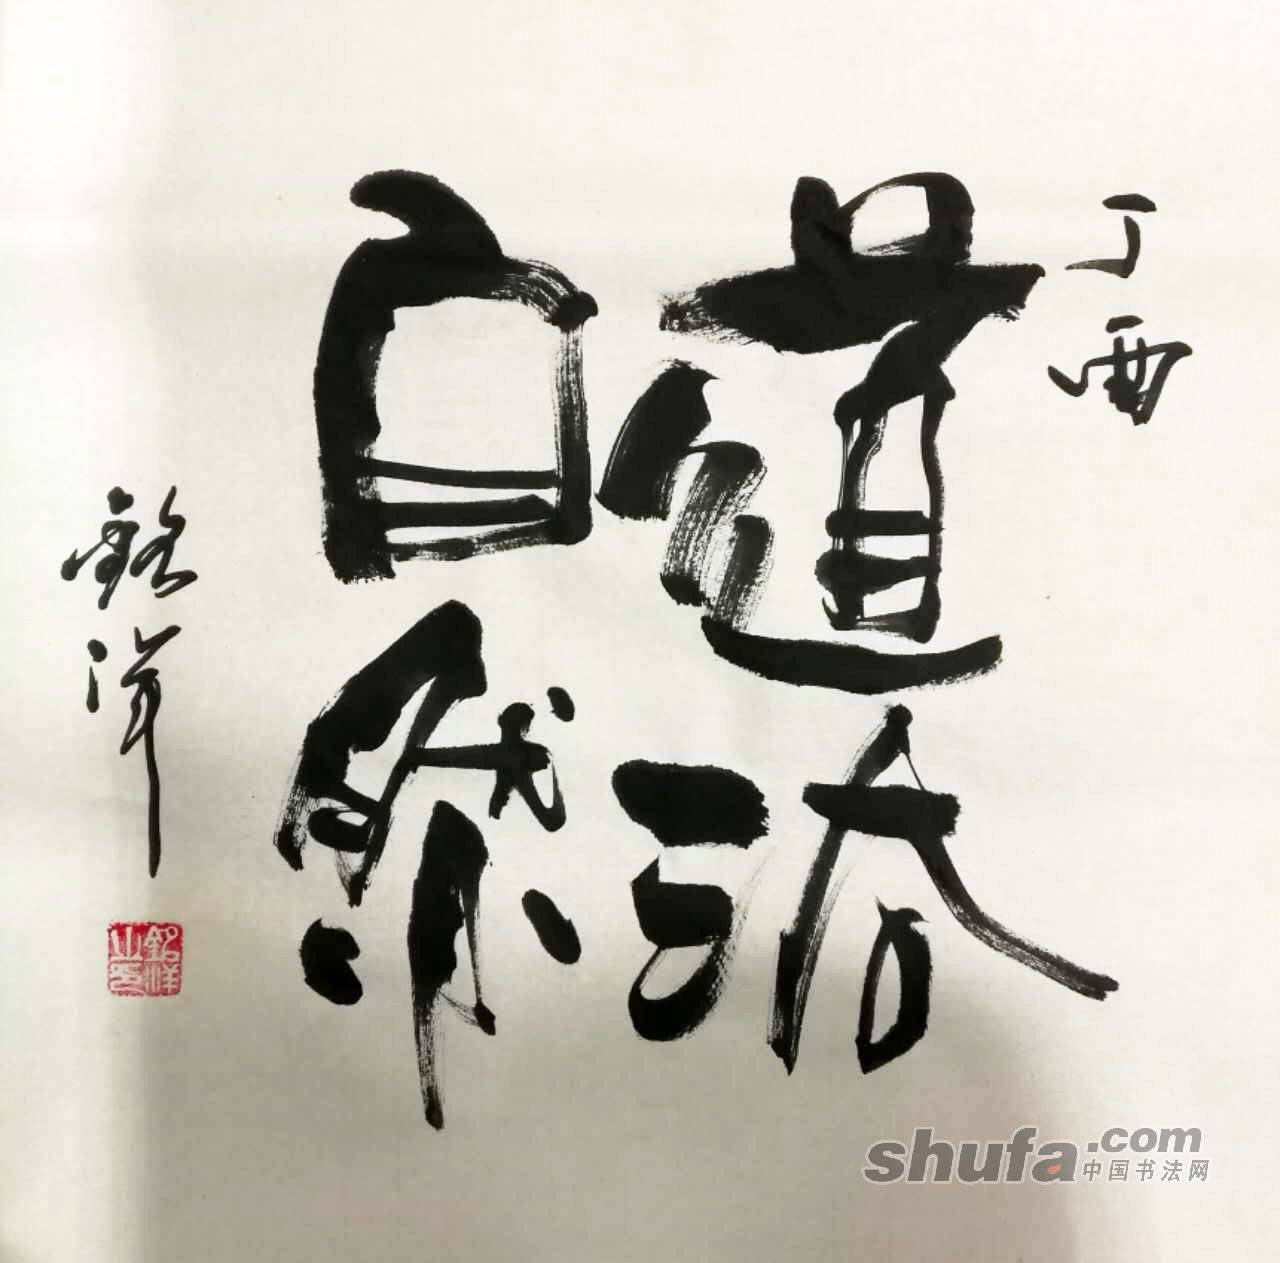 丁酉
道法
自然
銘洋
銘洋之印
shufa.com
中国书法网